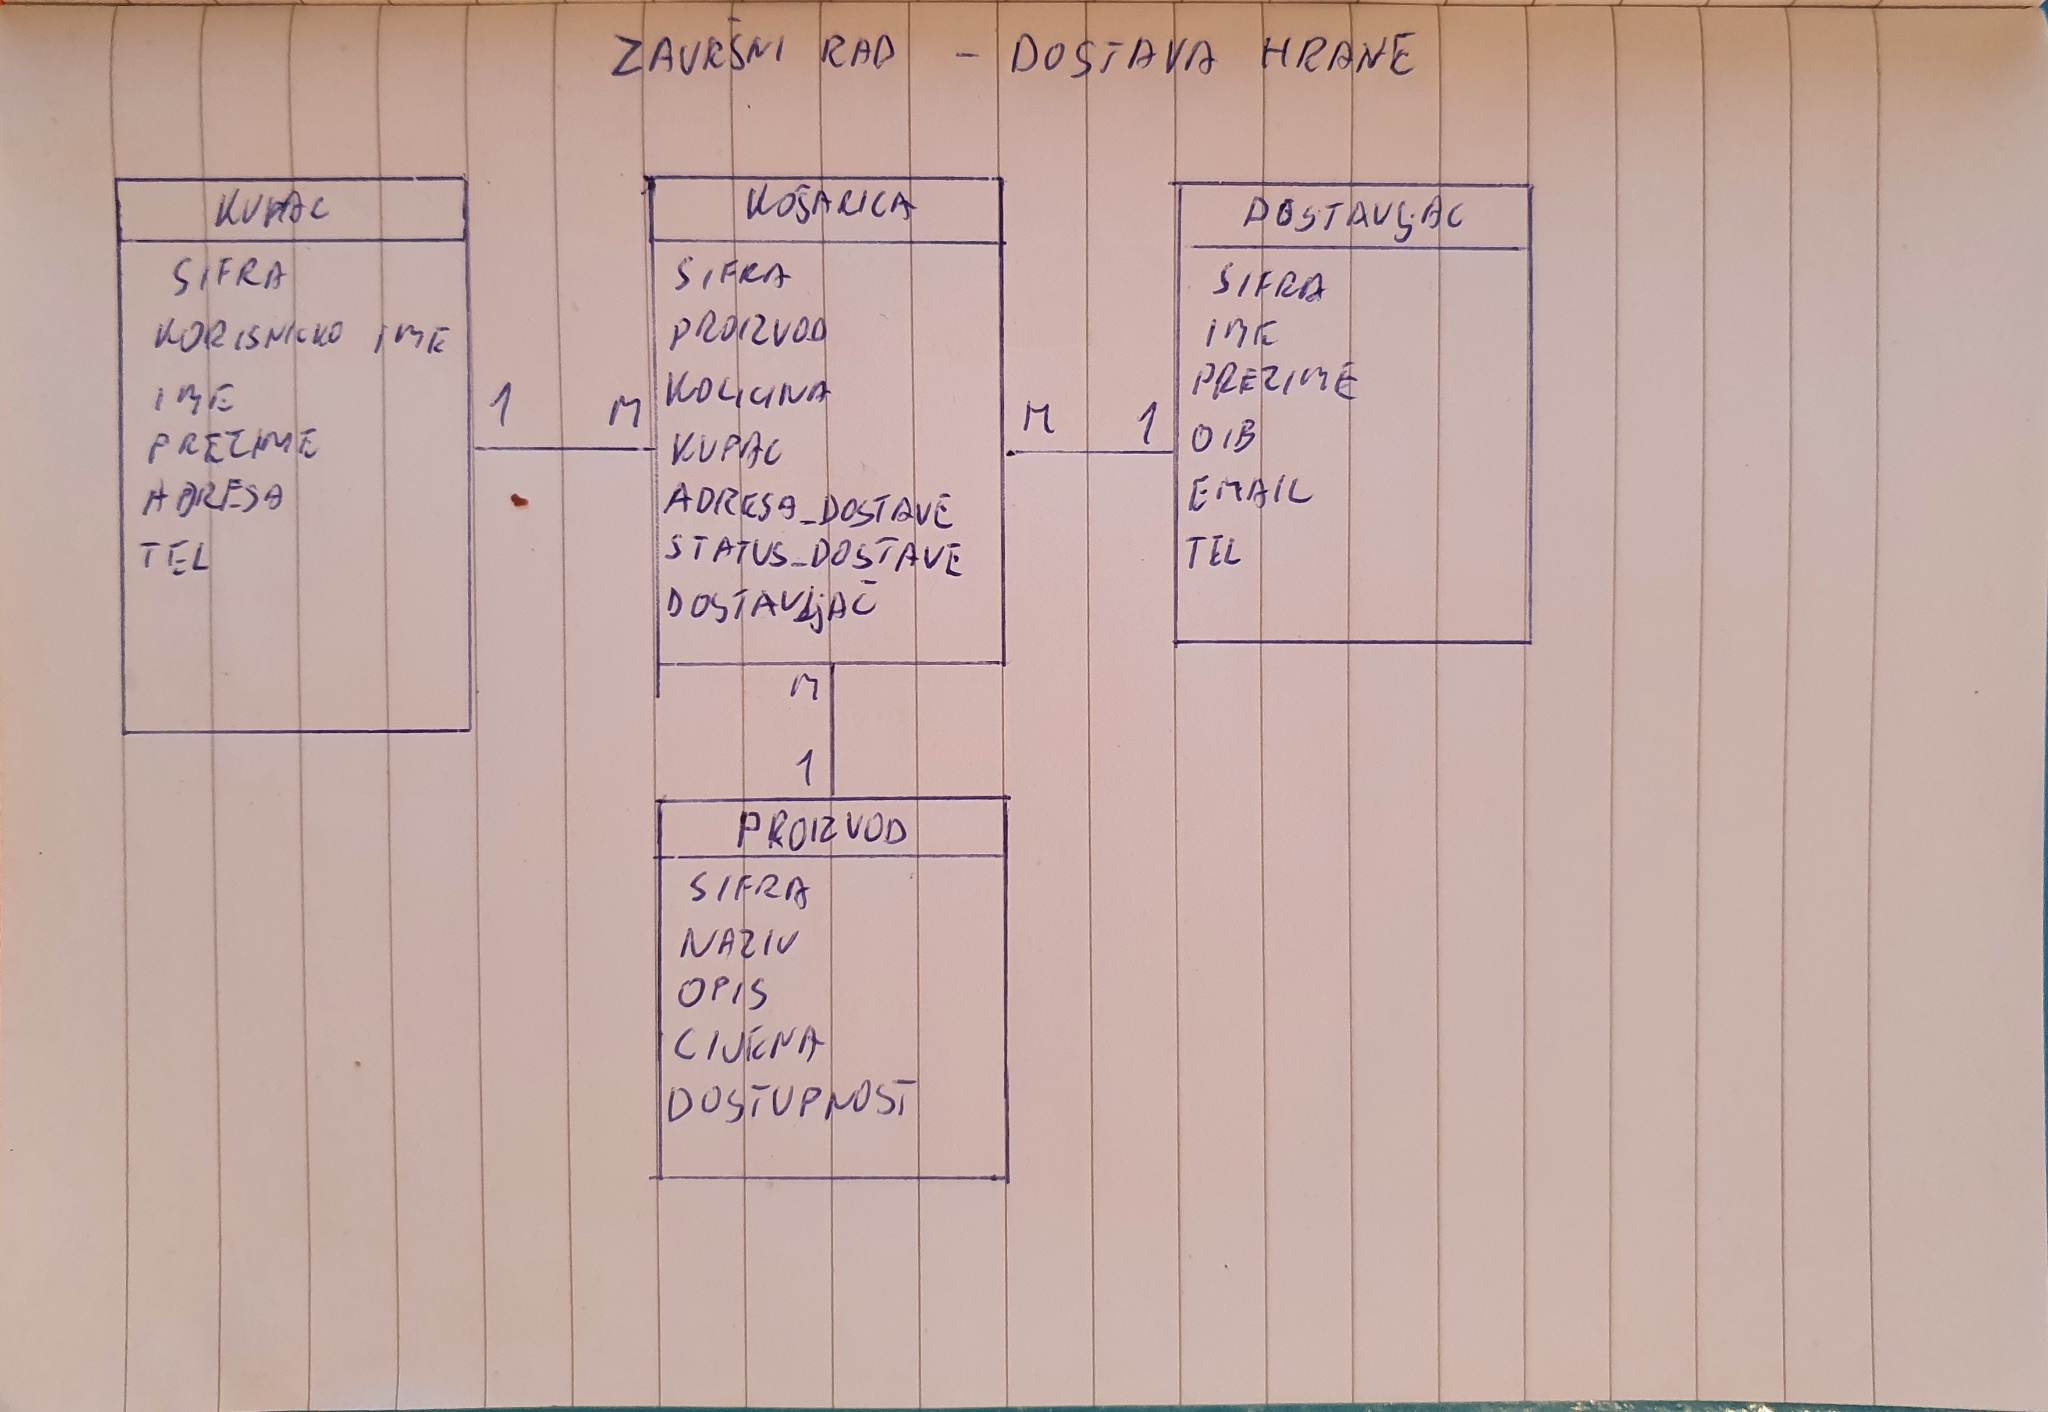 ZAVRŠNI RAD - DOSTAVA HRANE
KUPAC
SIFRA
KORISNICKO IME
IME
PREZIME
ADRESA
TEL
1
M
KOŠARICA
SIFRA
PROIZVOD
KOLICINA
KUPAC
ADRESA_DOSTAVE
STATUS_DOSTAVE
DOSTAVLjAČ
M
1
DOSTAVLjAC
SIFRA
IME
PREZIME
OIB
EMAIL
TEL
M
1
PROIZVOD
SIFRA
NAZIV
OPIS
CIJENA
DOSTUPNOST